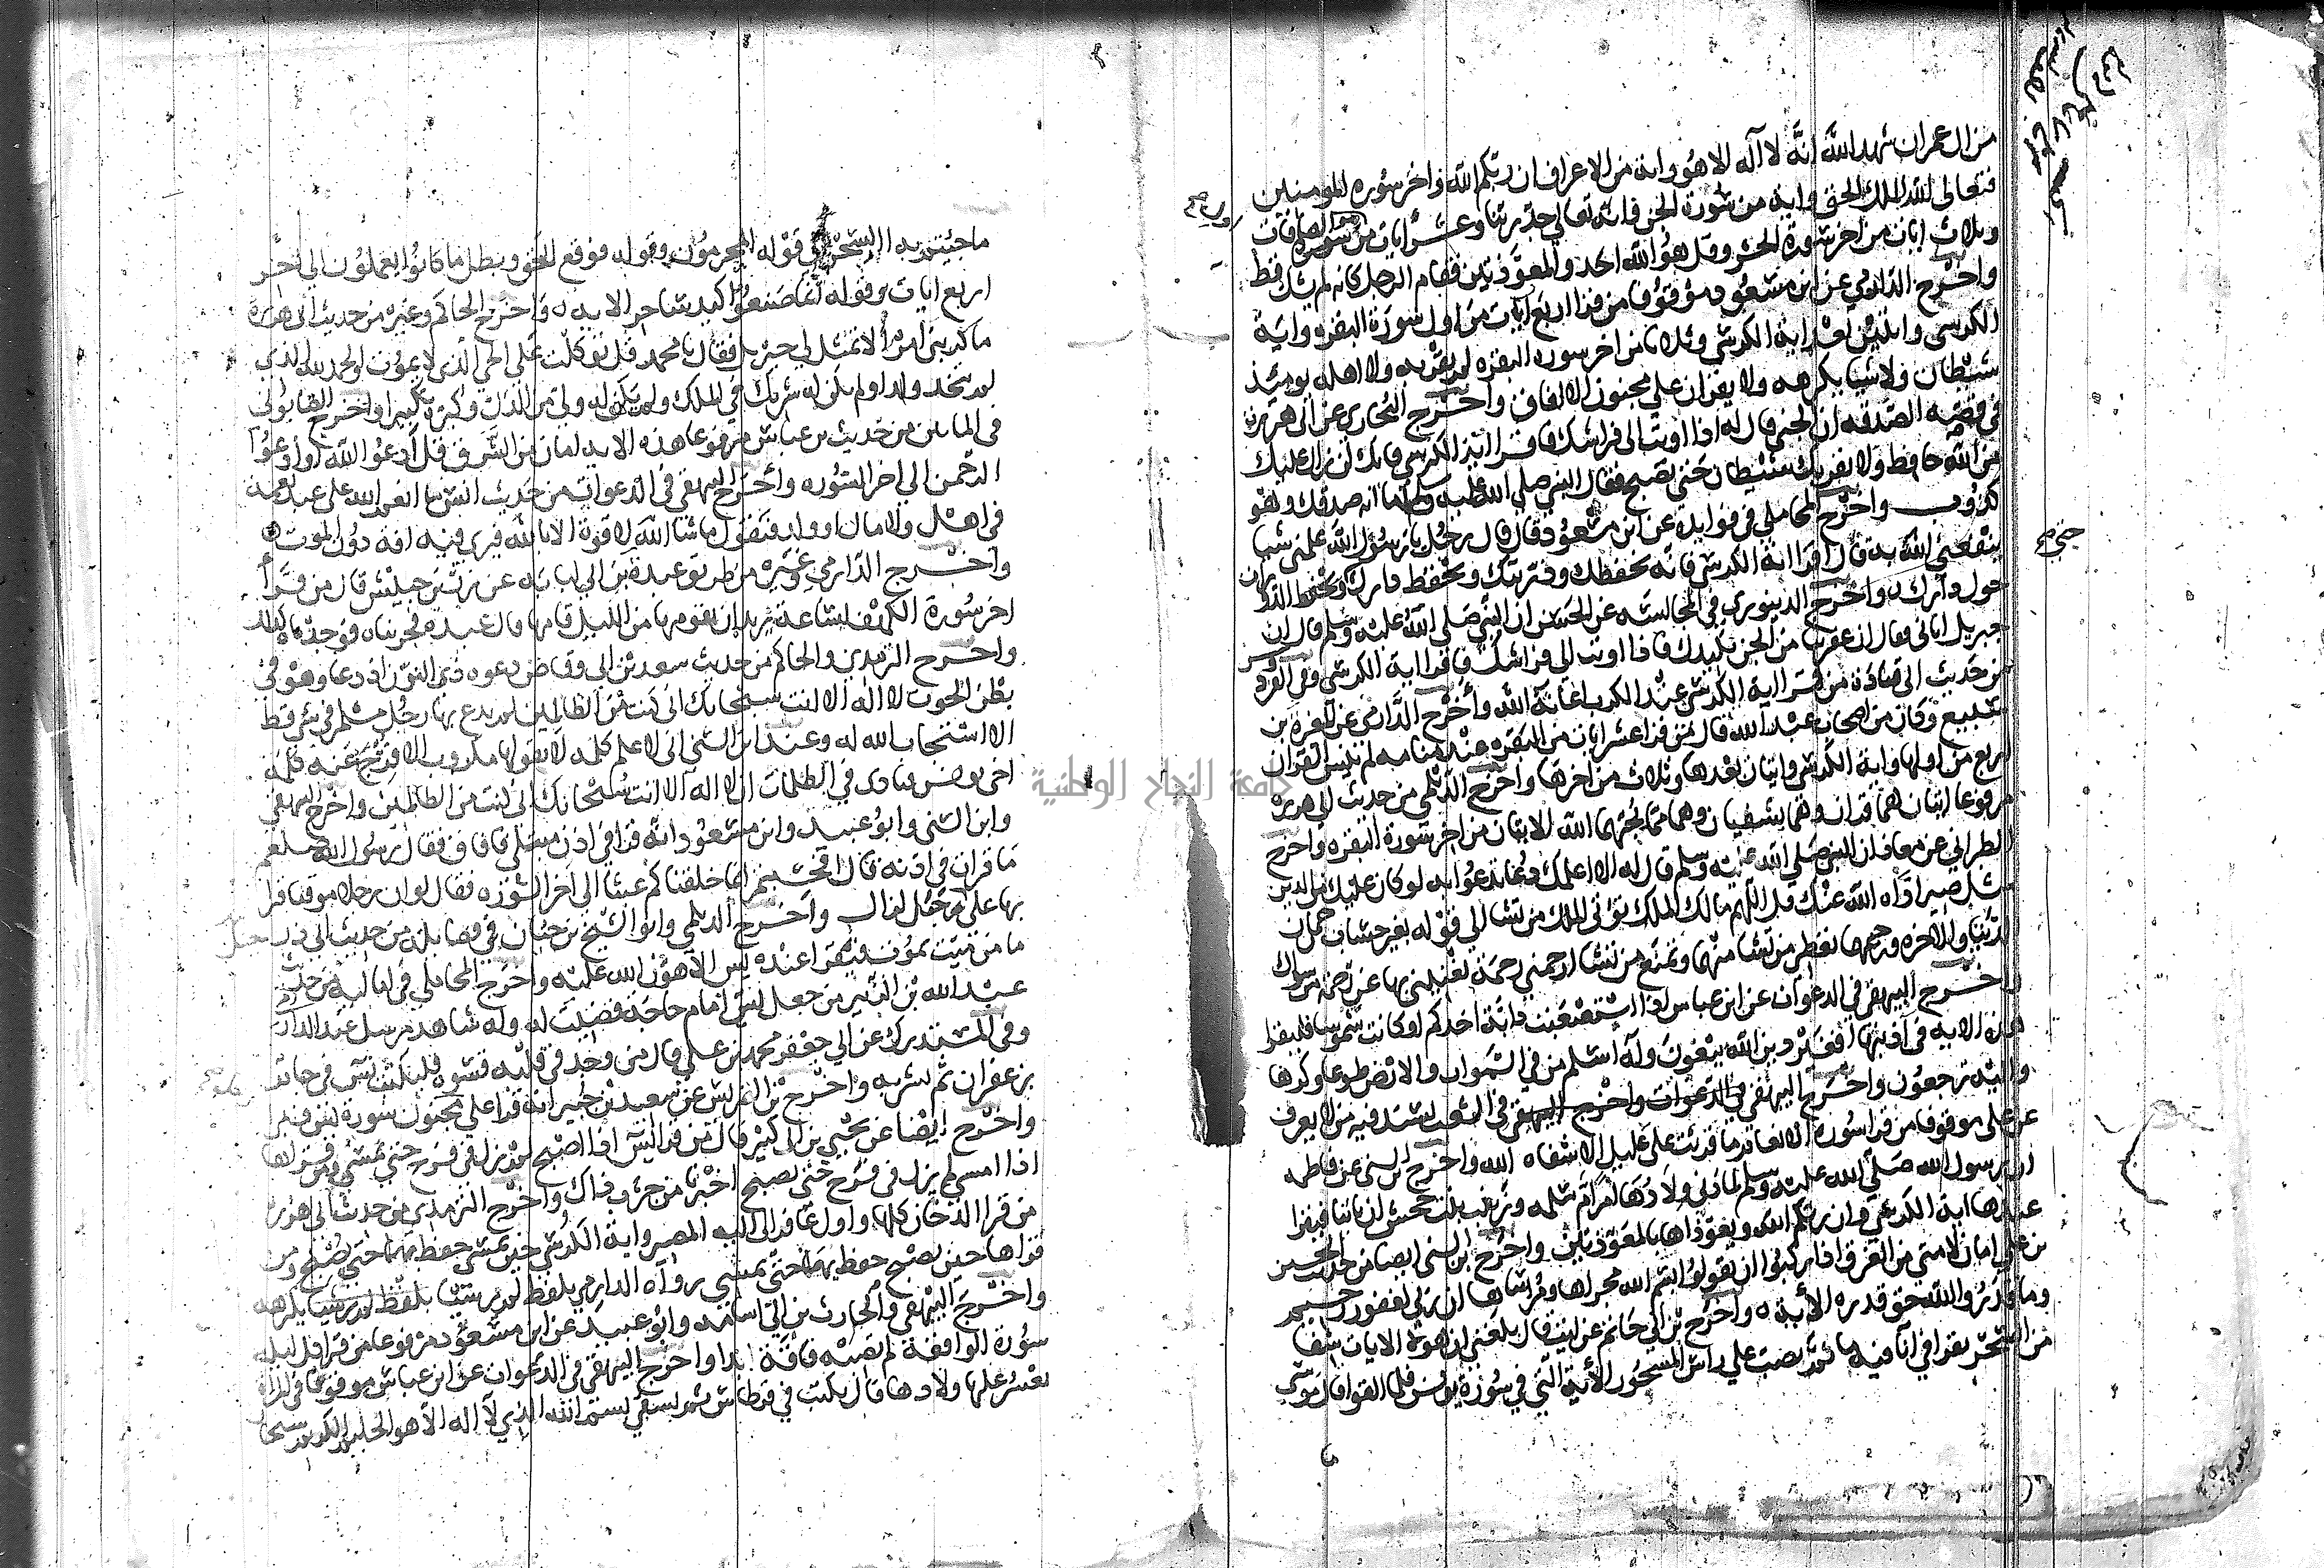 من ال عمران شهد الله أنه لا آله الا هو واية من الاعراف ان ربكم الله واخر سورة المومنين
فتعالى الله الملك الحق واية من سورة الجن فانه تعالى جد ربنا وعشر أيات من سورة الصافات
وثلاث ايات من اخر سورة الحشر وقل هو الله احد والمعوذتين فقام الرجل كانه لم يشك قط
واخرج الدارمي عن ابن مسعود موقوفا من قرا اربع ايات من اول سورة البقره واية
الكرسي وايتين بعد اية الكرسي وثلاثا من اخر سورة البقره لم يقربه ولا اهله يومئذ
شيطان ولا شيا يكرهه ولا يقران على مجنون الا افاق واخرج البخاري عن ابى هريرة
في قصة الصدقه ان الجني قال له اذا اويت الى فراشك فاقرا اية الكرسي فانك لن يزال عليك
من الله حافظ ولا يقربك شيطان حتى تصبح فقال النبي صلى الله عليه وسلم اما انه صدقك وهو
كذوب واخرج المحاملي في فوايده عن ابن مسعود قال قال رجل يا رسول الله علمني شيا
ينفعني الله به قال اقرا اية الكرسي فانه يحفظك وذريتك ويحفظ دارك ويحفظ الدويرات
حول دارك واخرج الدينوري في المجالسة عن الحسن ان النبي صلى الله عليه وسلم قال ان
جبريل اتاني فقال ان عفريتا من الجن يكيدك فاذا اويت الى فراشك فاقرا اية الكرسي وفي الفردوس
من حديث ابى قتاده من قرا اية الكرسي عند الكرب اغاثه الله واخرج الدارمي عن المغيرة بن
سبيع وكان من اصحاب عبد الله قال من قرا عشر ايات من البقره عند منامه لم ينس القران
اربع من اولها واية الكرسي وايتان بعدها وثلاث من اخرها واخرج الديلمي من حديث ابى هريره
مرفوعا ايتان هما قران وهما يشفيان وهما مما يحبهما الله الايتان من اخر سورة البقره واخرج
الطبراني عن معاذ ان النبي صلى الله عليه وسلم قال له الا اعلمك دعا تدعوا به لو كان عليك من الدين
مثل صبر اداه الله عنك قل اللهم مالك الملك تؤتى الملك من تشا الى قوله بغير حساب رحمن
الدنيا والاخره ورحيمهما تعطي من تشا منهما وتمنع من تشا ارحمني رحمة تغنيني بها عن رحمة من سواك
واخرج البيهقي في الدعوات عن ابن عباس اذا استصعبت دابة احدكم او كانت شموسا فليقرا
هذه الايه في اذنيها افغير دين الله يبغون وله اسلم من في السموات والارض طوعا وكرها
واليه ترجعون واخرج البيهقي في الدعوات واخرج البيهقي في الشعب بسند فيه من لا يعرف
عن علي موقوفا من قرا سورة الانعام ما قريت على عليل الا شفاه الله واخرج ابن السني عن فاطمه
ان رسول الله صلى الله عليه وسلم لما دنى ولادها امر ام سلمه وزينب بنت جحش ان ياتيا فيقرا
عندها اية الكرسي وان ربكم الله ويعوذاها بالمعوذتين واخرج ابن السني ايضا من حديث الحسين
بن علي امان لامتي من الغرق اذا ركبوا ان يقولوا بسم الله مجراها ومرساها ان ربي لغفور رحيم
وما قدروا الله حق قدره الأية واخرج بن ابي حاتم عن ليث قال بلغني ان هولا الايات شفا
من السحر يقرا في انا فيه ما ثم يصب على راس المسحور الأية التي في سورة يونس فلما القوا قال موسى
ما جيتم به السحر الى قوله المجرمون وقوله فوقع الحق وبطل ما كانوا يعملون الى اخر
اربع ايات وقوله انما صنعوا كيد ساحر الاية واخرج الحاكم وغيره من حديث ابى هريرة
ما كربنى امر الا تمثل لي جبريل فقال يا محمد قل توكلت على الحي الذي لا يموت والحمد لله الذي
لم يتخذ ولدا ولم يكن له شريك في الملك ولم يكن له ولي من الذل وكبره تكبيرا واخرج الصابونى
في الماتين من حديث بن عباس مرفوعا هذه الاية امان من السرق قل ادعوا الله او ادعوا
الرحمن الى اخر السوره واخرج البيهقي في الدعوات من حديث انس ما انعم الله على عبد نعمة
في اهل ولا مال او ولد فيقول ما شا الله لا قوة الا بالله فيرى فيه افة دون الموت
واخرج الدارمي وغيره من طريق عبدة بن ابي لبابة عن زر بن حبيش قال من قرأ
اخر سورة الكهف لساعة يريد ان يقومها من الليل قامها قال عبدة فجربناه فوجدناه كذلك
واخرج الترمذي والحاكم من حديث سعد بن ابي وقاص دعوه ذى النون اذ دعا وهو في
بطن الحوت لا اله الا انت سبحانك انى كنت من الظالمين لم يدع بها رجل مسلم في شى قط
الا استجاب الله له وعند ابن السني اني لا علم كلمه لا يقولها مكروب الا فرج عنه كلمة
اخي يونس فنادى في الظلمات ان لا اله الا انت سبحانك انى كنت من الظالمين واخرج البيهقي
وابن السني وابو عبيد وابن مسعود انه قرا في اذن مبتلى فافاق فقال رسول الله صلعم
ما قرات في اذنه قال افحسبتم انما خلقناكم عبثا الى اخر السوره فقال لو ان رجلا موقنا قرا
بها على جبل لزال واخرج الديلمي وابو الشيخ بن حبان في فضايله من حديث ابي ذر
ما من ميت يموت فيقرا عنده يس الا هون الله عليه واخرج المحاملي في اماليه من حديث
عبد الله بن الزبير من جعل يس امام حاجة قضيت له وله شاهد مرسل عند الدارمي
وفي المستدرك عن ابي جعفر محمد بن علي قال من وجد في قلبه قسوه فليكتب يس في جام
بزعفران ثم يشربه واخرج بن الضريس عن سعيد بن جبير انه قرا على مجنون سورة يس فبرا
واخرج ايضا عن يحيى بن ابى كثير قال من قرا يس اذا اصبح لم يزل في فرح حتى يمسي ومن قراها
اذا امسى لم يزل في فرح حتى يصبح اخبرنا من جرب ذاك واخرج الترمذي من حديث ابى هريرة
من قرا الدخان كلها واول غافر الى اليه المصير واية الكرسي حين يمسي حفظ بهما حتى يصبح ومن
قراها حين يصبح حفظ بهما حتى يمسي رواه الدارمي بلفظ لم ير شيا يكرهه
واخرج البيهقي والحارث بن ابي اسامه وابو عبيد عن ابن مسعود مرفوعا من قرا كل ليلة
سورة الواقعة لم تصبه فاقة ابدا واخرج البيهقي في الدعوات عن ابن عباس موقوفا في المراة
يعسر عليها ولادها قال يكتب في قرطاس ثم تسقى بسم الله الذي لا اله الا هو الحليم الكريم سبحان
جامعة النجاح الوطنية